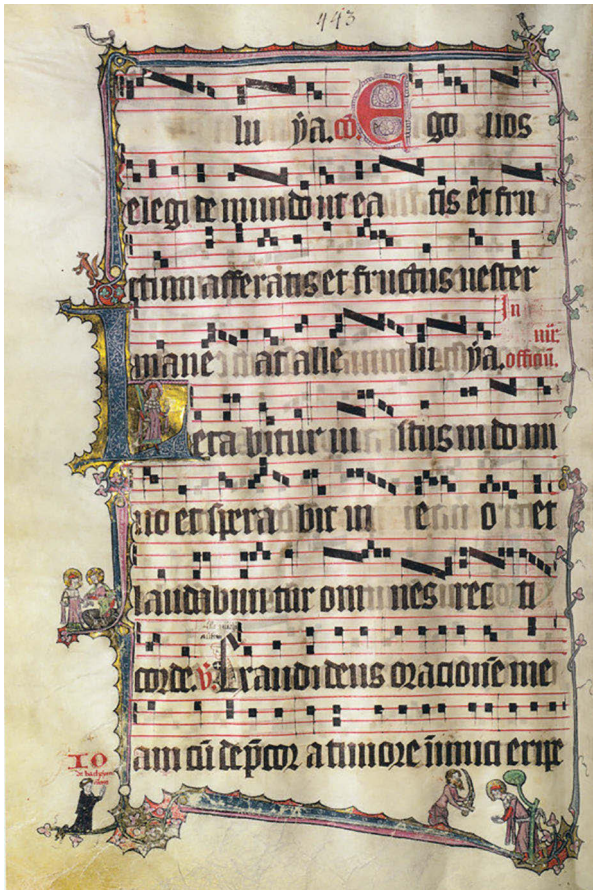 443
lu ẏa. cō. Ego uos
elegi de mundo ut ea tis et fru
ctum afferatis et fructus uester
In
mane at alle lu ẏa. officiū.
Leta bitur iu stus in do mi
no et spera bit in e o et
laudabuntur om nes rec ti
corde. v̄. Exaudi deus oracionē me
am cū dep̄cor a timore inimici eripe
IO